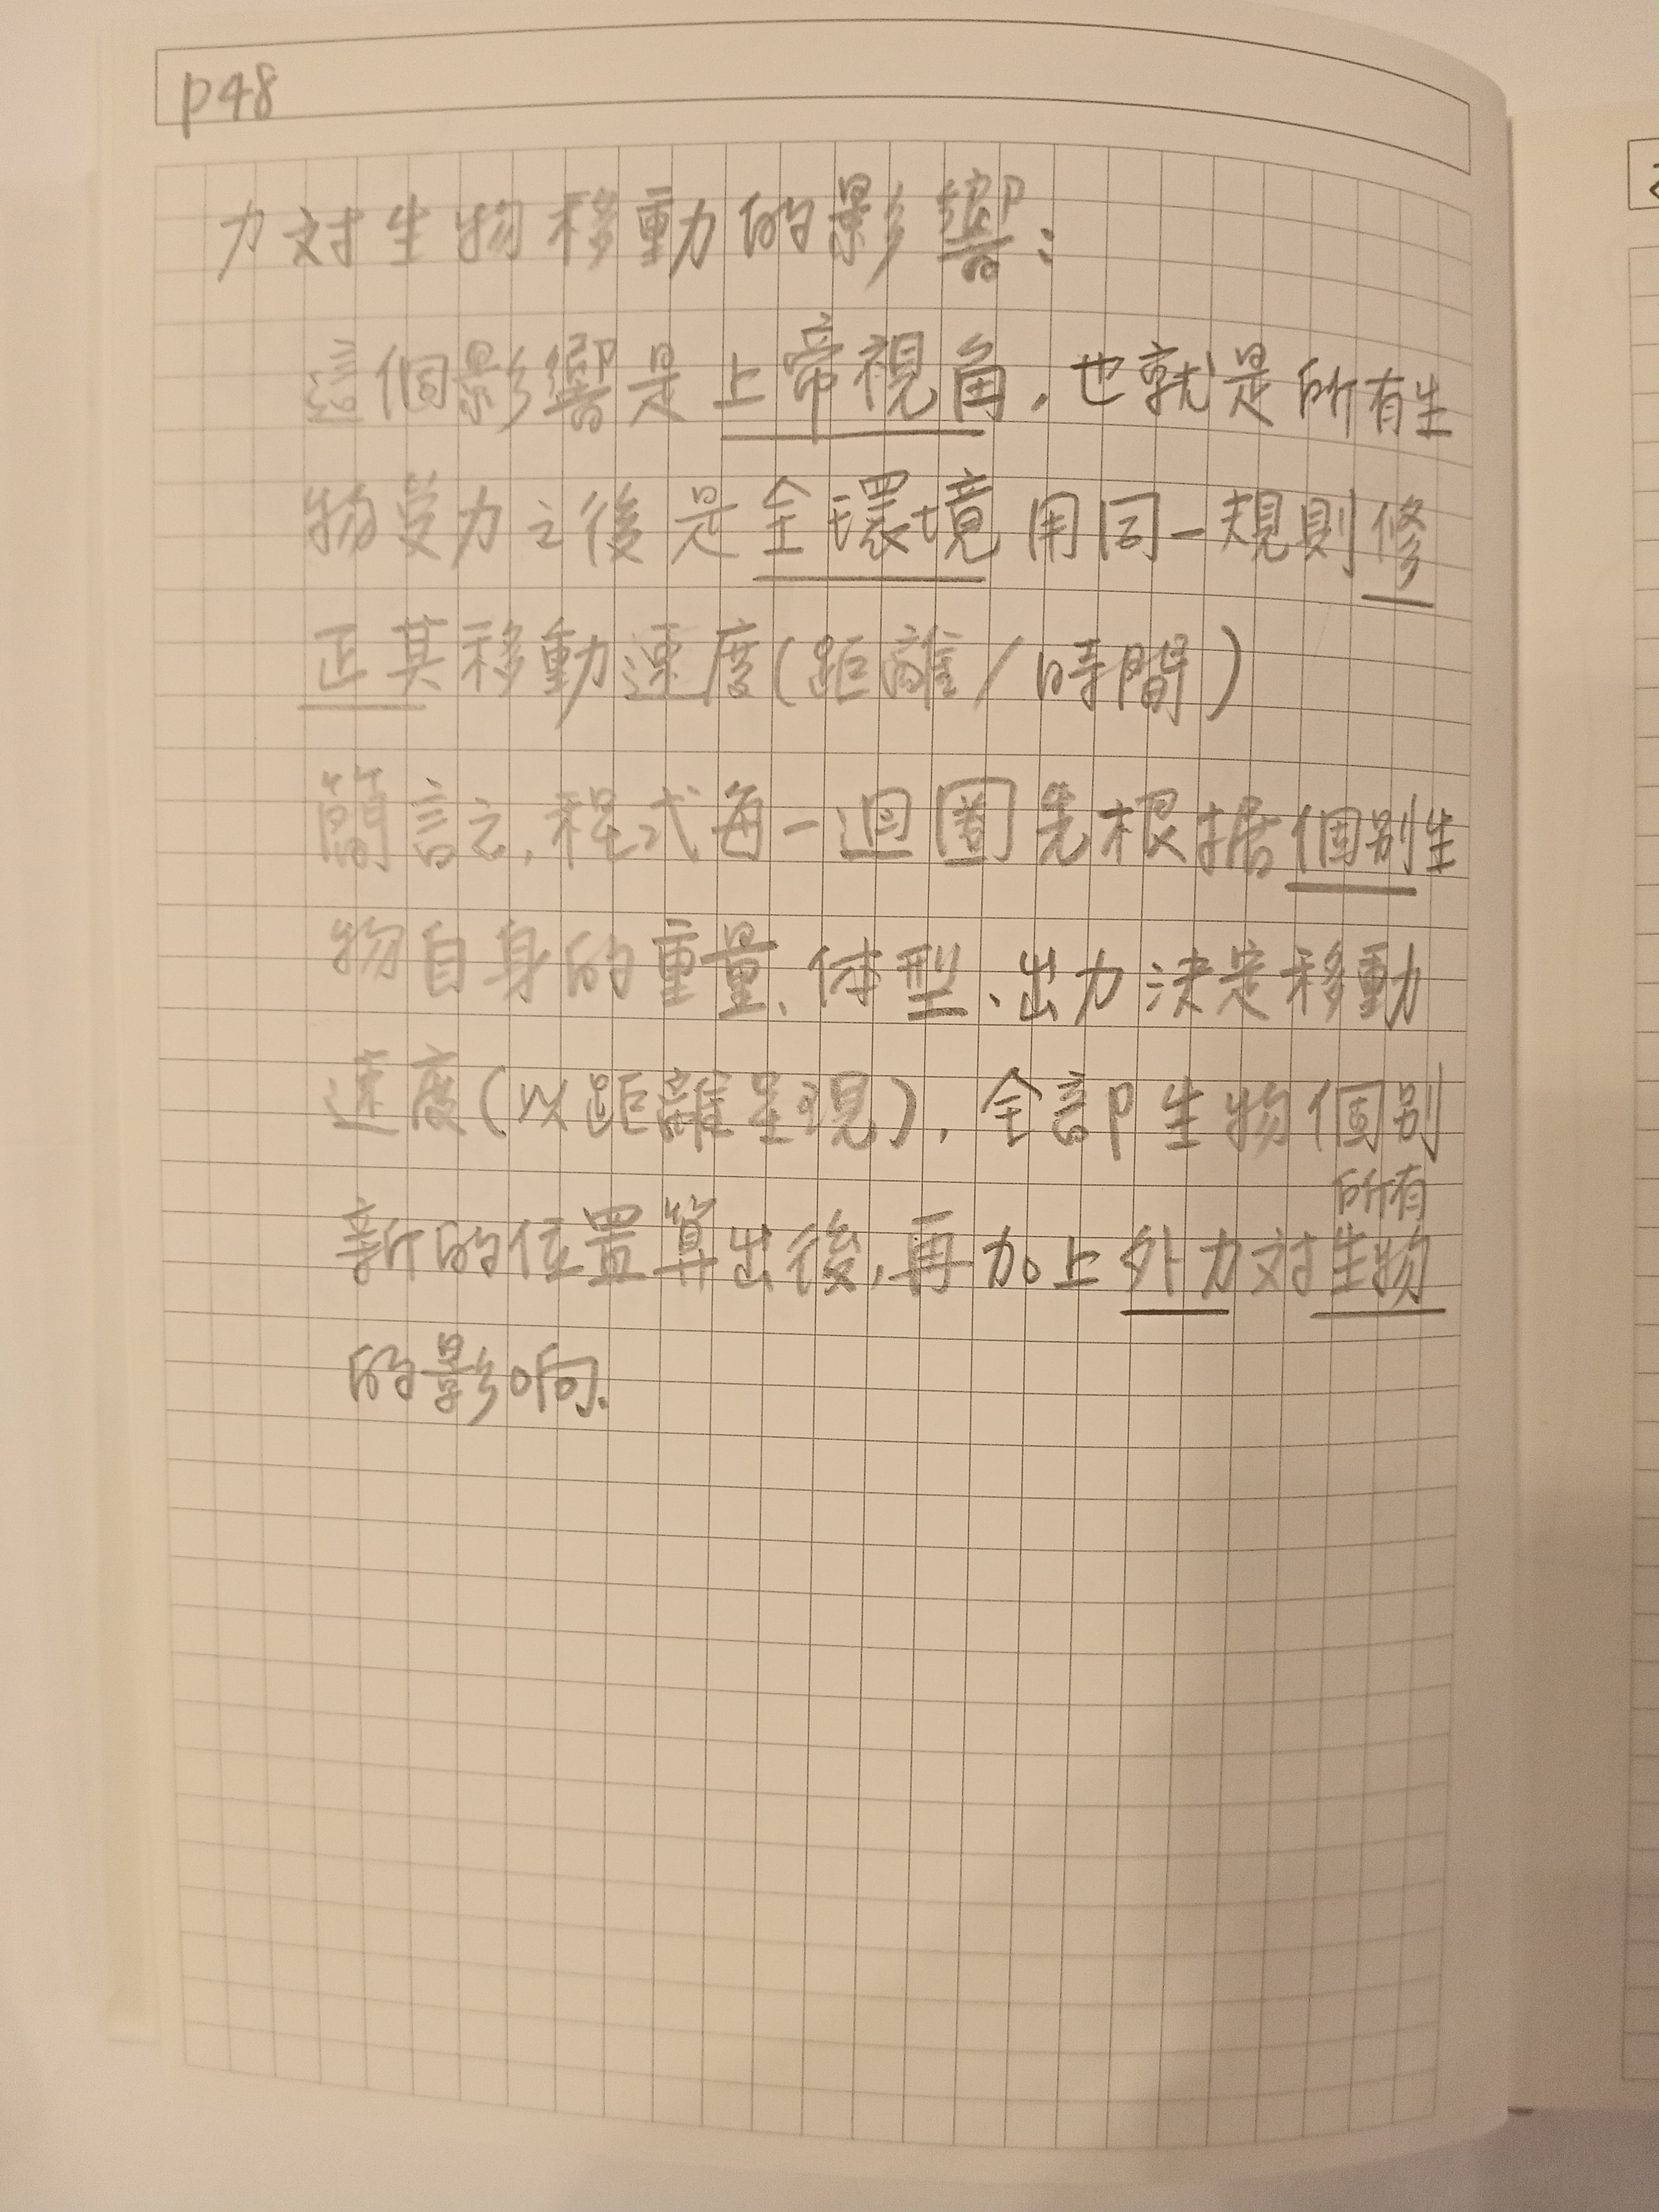 p48
力对生物移動的影響:
這個影響是上帝視角,也就是所有生
物受力之後是全環境用同一規則修
正其移動速度(距離/時間)
簡言之,程式每一迴圈先根据個別生
物自身的重量、体型、出力決定移動
速度(以距離呈現),全部生物個別
所有
新的位置算出後,再加上外力对生物
的影响.